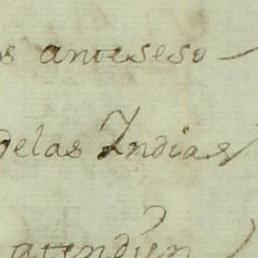 s anteseso
delas Indias
atendien